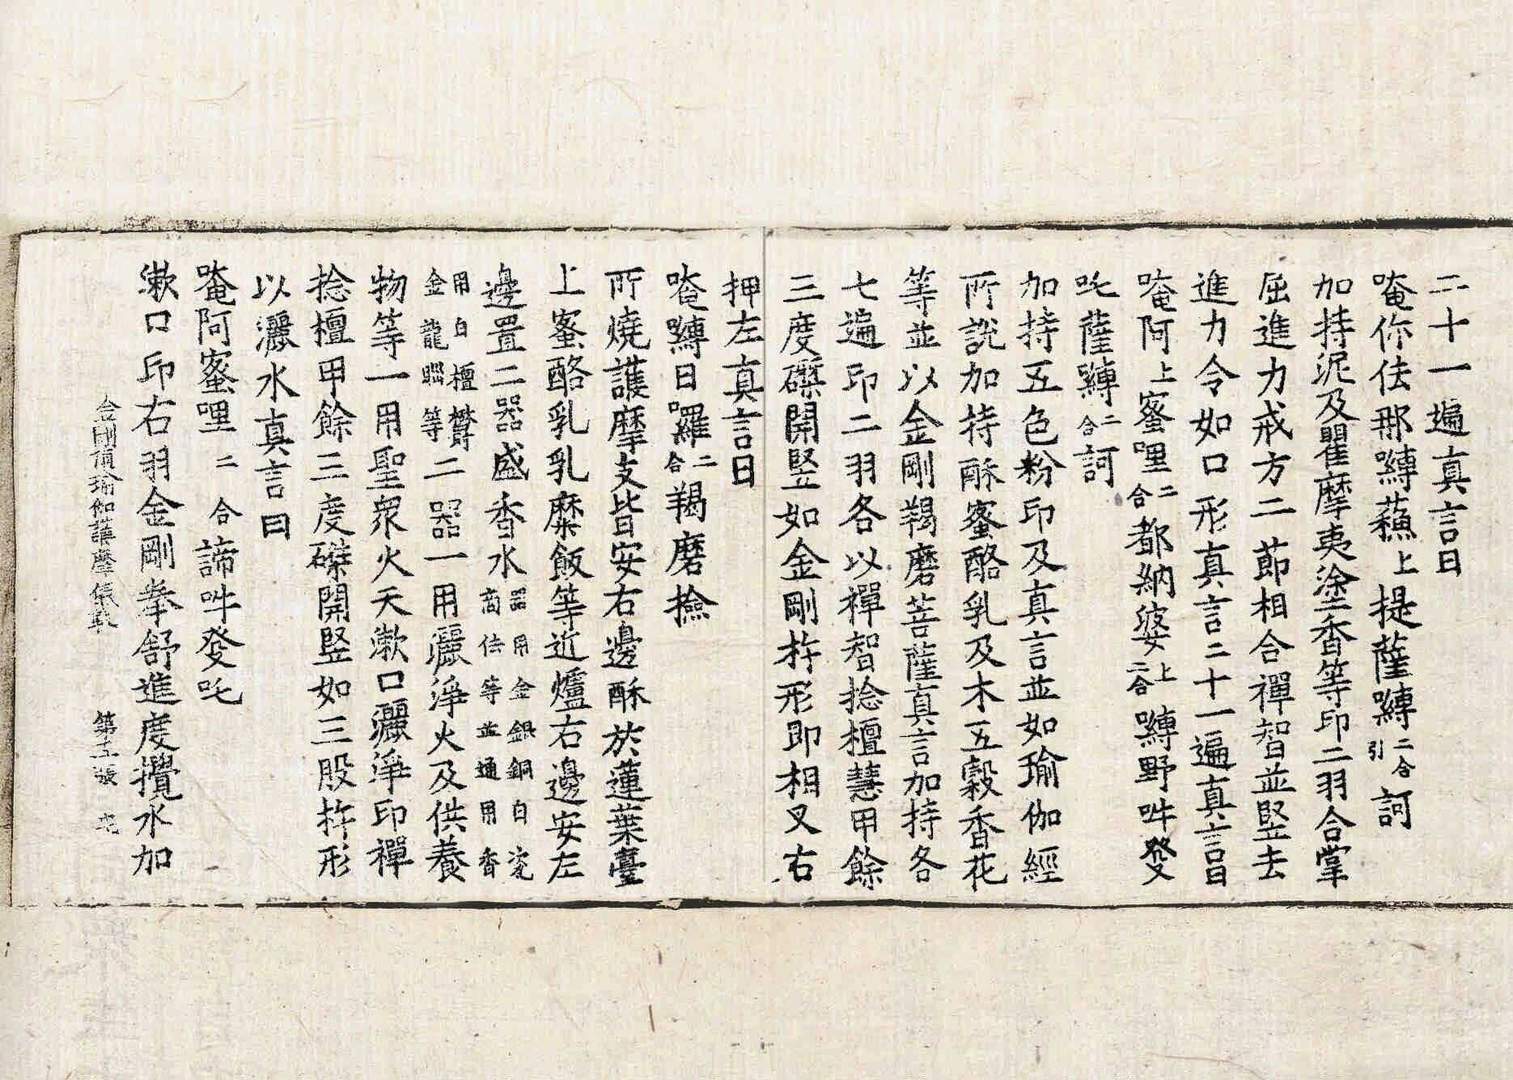 二十一遍真言曰
唵你佉那嚩蘓上提薩嚩二合引訶
加持泥及瞿摩夷塗香等印二羽合掌
屈進力戒方二節相合禪智並竪去
進力令如口形真言二十一遍真言曰
唵阿上蜜哩二合都納婆上二合嚩野吽發
吒薩嚩二合訶
加持五色粉印及真言並如瑜伽經
所說加持酥蜜酪乳及木五穀香花
等並以金剛羯磨菩薩真言加持各
七遍印二羽各以禪智捻檀慧甲餘
三度磔開竪如金剛杵形即相叉右
押左真言曰
唵嚩日囉二合羯磨撿
所燒護摩支皆安右邊酥於蓮葉臺
上蜜酪乳乳糜飯等近爐右邊安左
邊置二器盛香水器用金銀銅白瓷商佉等並通用香
用白檀欝金龍腦等二器一用灑淨火及供養
物等一用聖衆火天漱口灑淨印禪
捻檀甲餘三度磔開竪如三股杵形
以灑水真言曰
唵阿蜜哩二合諦吽發吒
漱口印右羽金剛拳舒進度攪水加
金剛頂瑜伽護摩儀軌 第五張